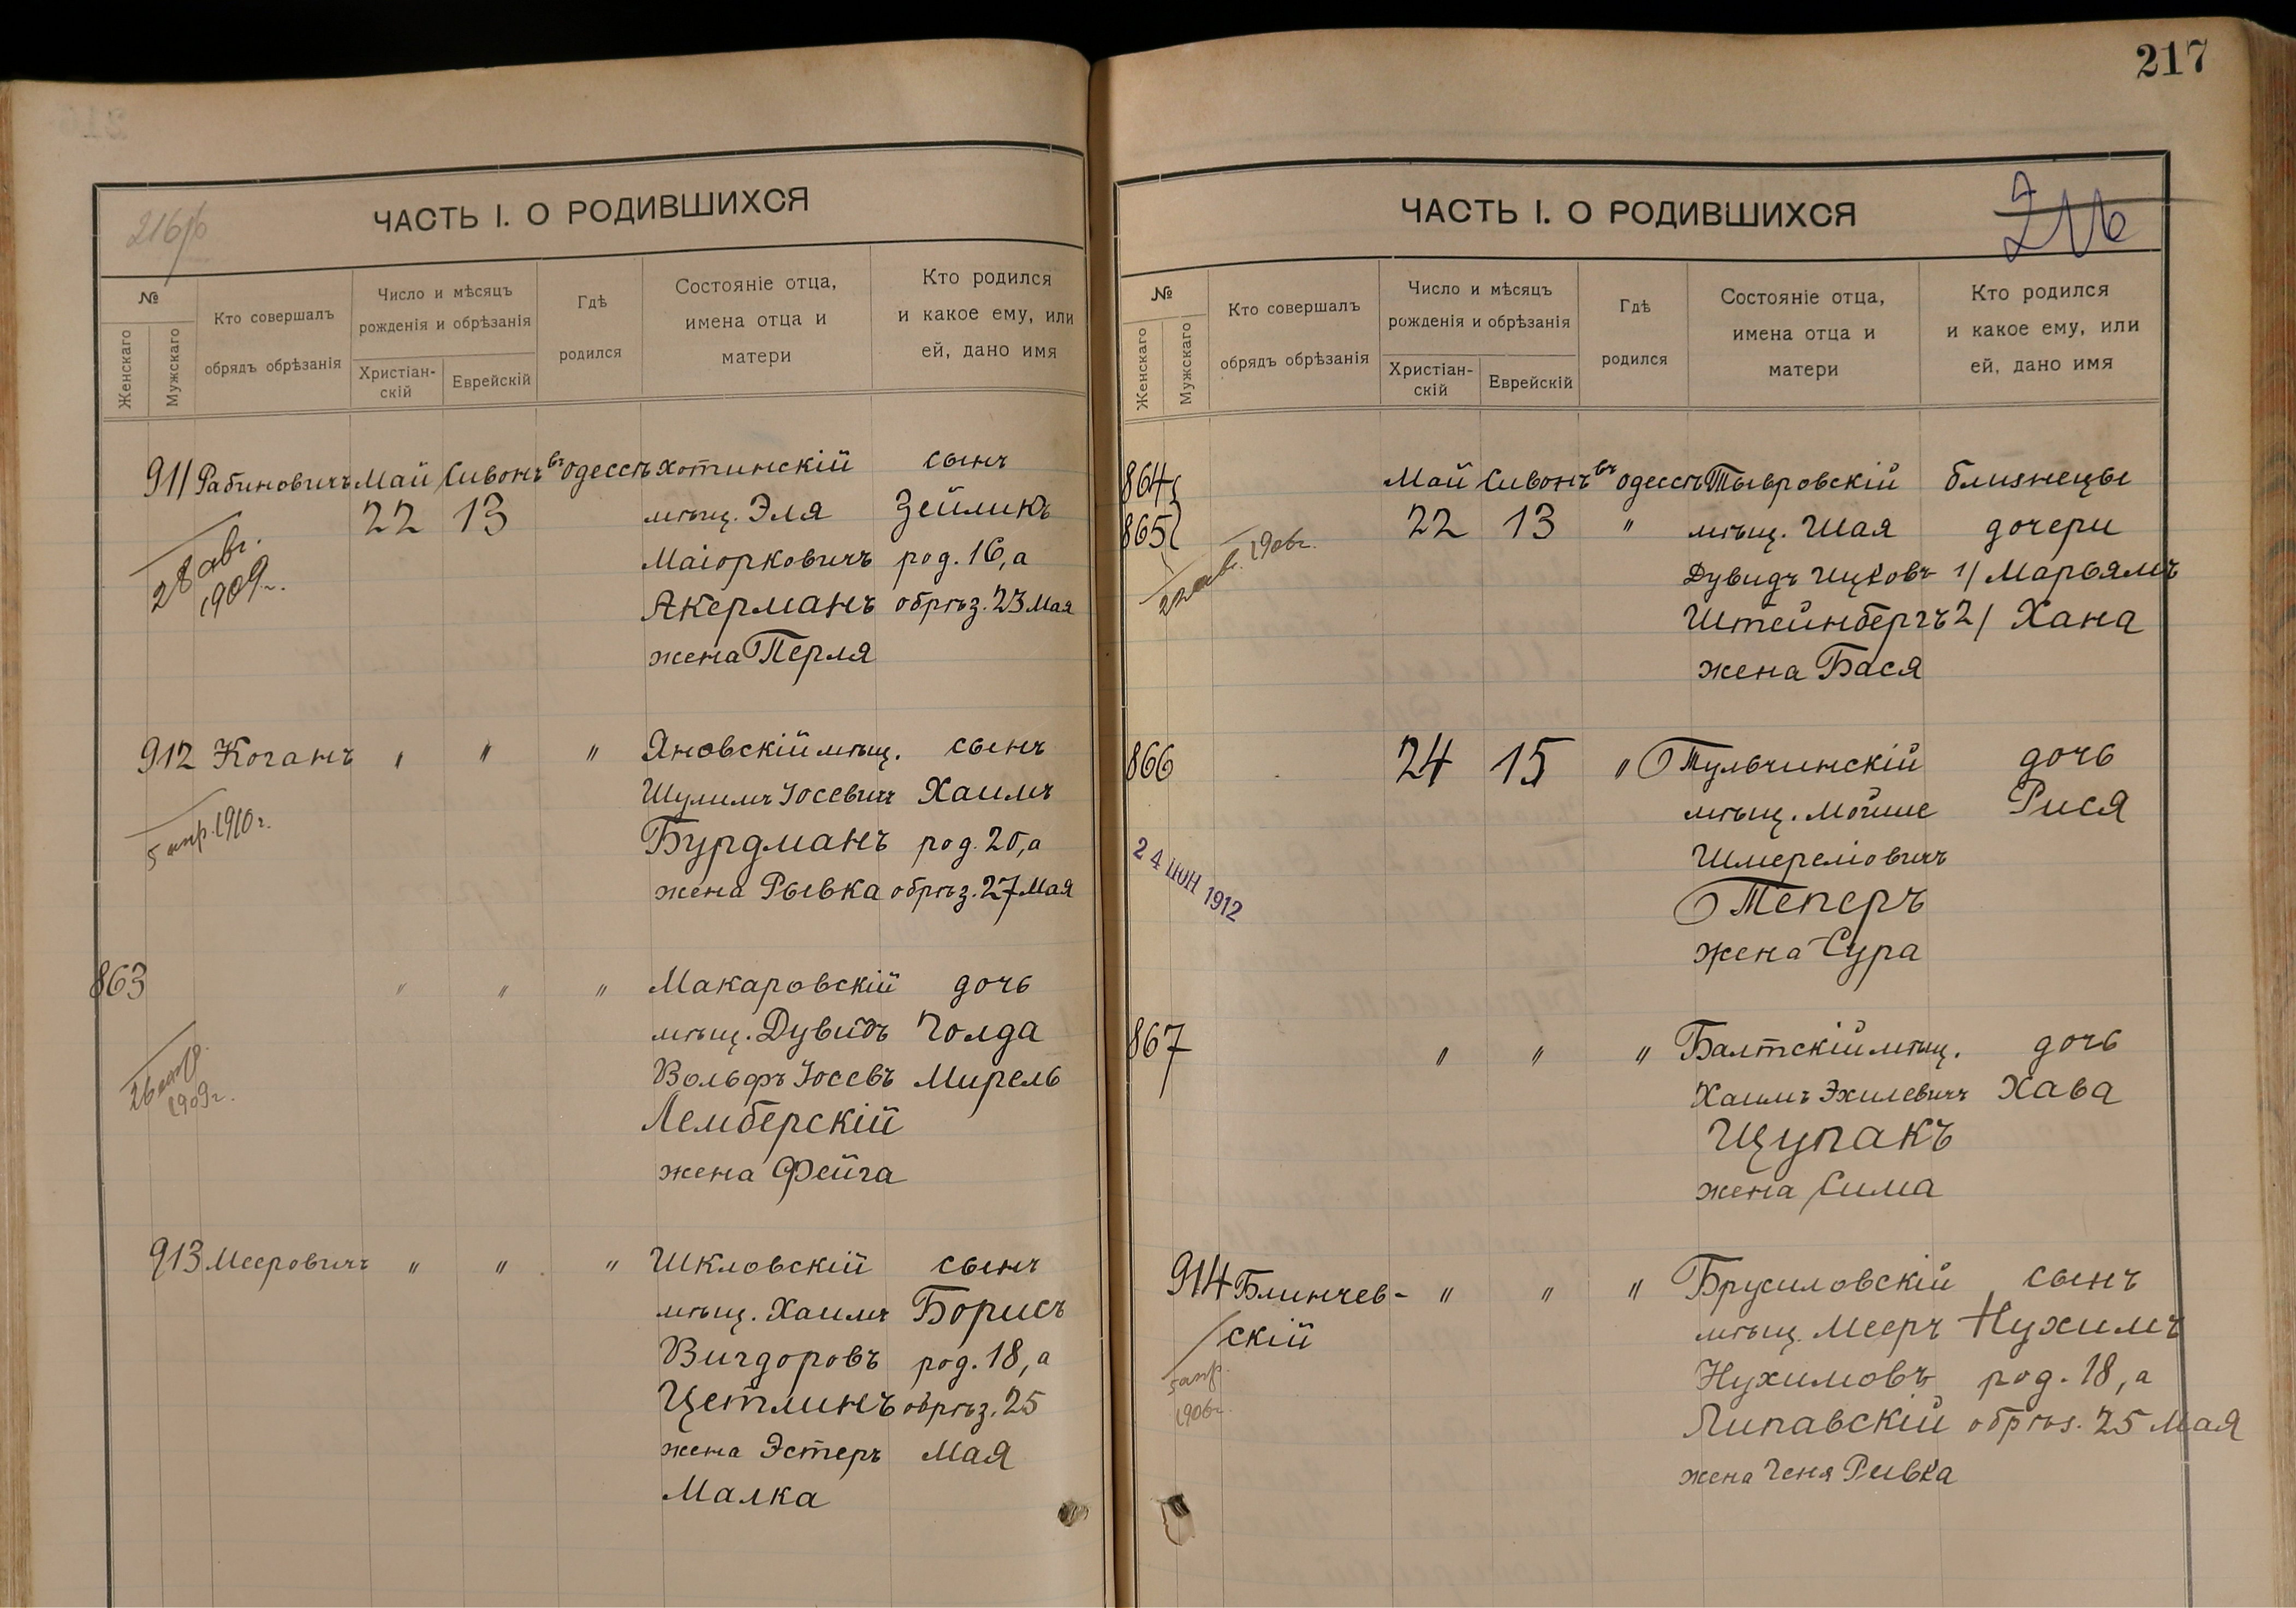 217
216
ЧАСТЬ I. О РОДИВШИХСЯ
№
Женскаго
Мужскаго
Кто совершалъ
обрядъ обрѣзанія
Число и мѣсяцъ
рожденія и обрѣзанія
Христіан-
скій
Еврейскій
Гдѣ
родился
Состояніе отца,
имена отца и
матери
Кто родился
и какое ему, или
ей, дано имя
911 Рабиновичъ Май Сивонъ въ Одессѣ Хотинскій сынъ
22 13 мѣщ. Эля Зейликъ
Маіорковичъ род. 16, а
Акерманъ обрѣз. 23 Мая
жена Перля
28 авг.
1909 г.
912 Коганъ " " " Яновскій мѣщ. сынъ
Шулимъ Іосевичъ Хаимъ
Бурдманъ род. 20, а
жена Рывка обрѣз. 27 Мая
5 апр. 1910 г.
863 " " " Макаровскій дочь
мѣщ. Дувидъ Голда
Вольфъ Іосевъ Мирель
Лемберскій
жена Фейга
26
1909 г.
913 Мееровичъ " " " Шкловскій сынъ
мѣщ. Хаимъ Борисъ
Вигдоровъ род. 18, а
Цетлинъ обрѣз. 25
жена Эстеръ Мая
Малка
ЧАСТЬ I. О РОДИВШИХСЯ
№
Женскаго
Мужскаго
Кто совершалъ
обрядъ обрѣзанія
Число и мѣсяцъ
рожденія и обрѣзанія
Христіан-
скій
Еврейскій
Гдѣ
родился
Состояніе отца,
имена отца и
матери
Кто родился
и какое ему, или
ей, дано имя
864 Май Сивонъ въ Одессѣ Тывровскій близнецы
865 22 13 " мѣщ. Шая дочери
Дувидъ Ицковъ 1/ Марьямъ
Штейнбергъ 2/ Хана
жена Бася
1906 г.
866 24 15 " Тульчинскій дочь
мѣщ. Мойше Рися
Шмереліовичъ
Теперъ
жена Сура
24 ІЮН 1912
867 " " " Балтскій мѣщ. дочь
Хаимъ Эхилевичъ Хава
Щупакъ
жена Сима
914 Блинчев- " " " Брусиловскій сынъ
скій мѣщ. Мееръ Нухимъ
Нухимовъ род. 18, а
Липавскій обрѣз. 25 Мая
жена Геня Ривка
5 апр.
1906 г.